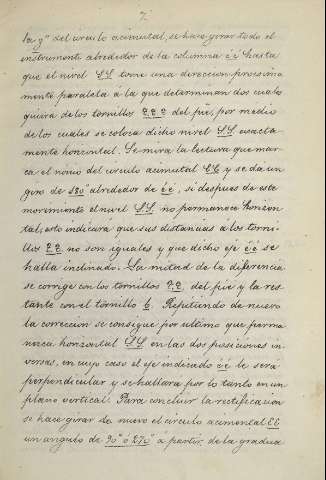 7.
la q.ª del círculo acimutal, se hace girar todo el
instrumento alrededor de la columna é é hasta
que el nivel S.S. tome una direccion proxima
mente paralela á la que determinan dos cuales
quiera de los tornillos P, P, P del pié, por medio
de los cuales se coloca dicho nivel S.S. exacta
mente horizontal. Se mira la lectura que mar
ca el nonio del círculo acimutal C.C. y se da un
giro de 180° alrededor de é é, si despues de este
movimiento el nivel S.S. no permanece horizon
tal, esto indicara que sus distancias á los torni
llos P.P. no son iguales y que dicho eje é é se
halla inclinado. La mitad de la diferencia
se corrige con los tornillos P.P. del pié y la res
tante con el tornillo b. Repetiendo de nuevo
la correccion se consigue por ultimo que perma
nezca horizontal S.S. en las dos posiciones in
versas, en cuyo caso el eje indicado é é le sera
perpendicular y se hallara por lo tanto en un
plano vertical. Para concluir la rectificacion
se hace girar de nuevo el círculo acimutal
un angulo de 90° ó 270° á partir de la gradua